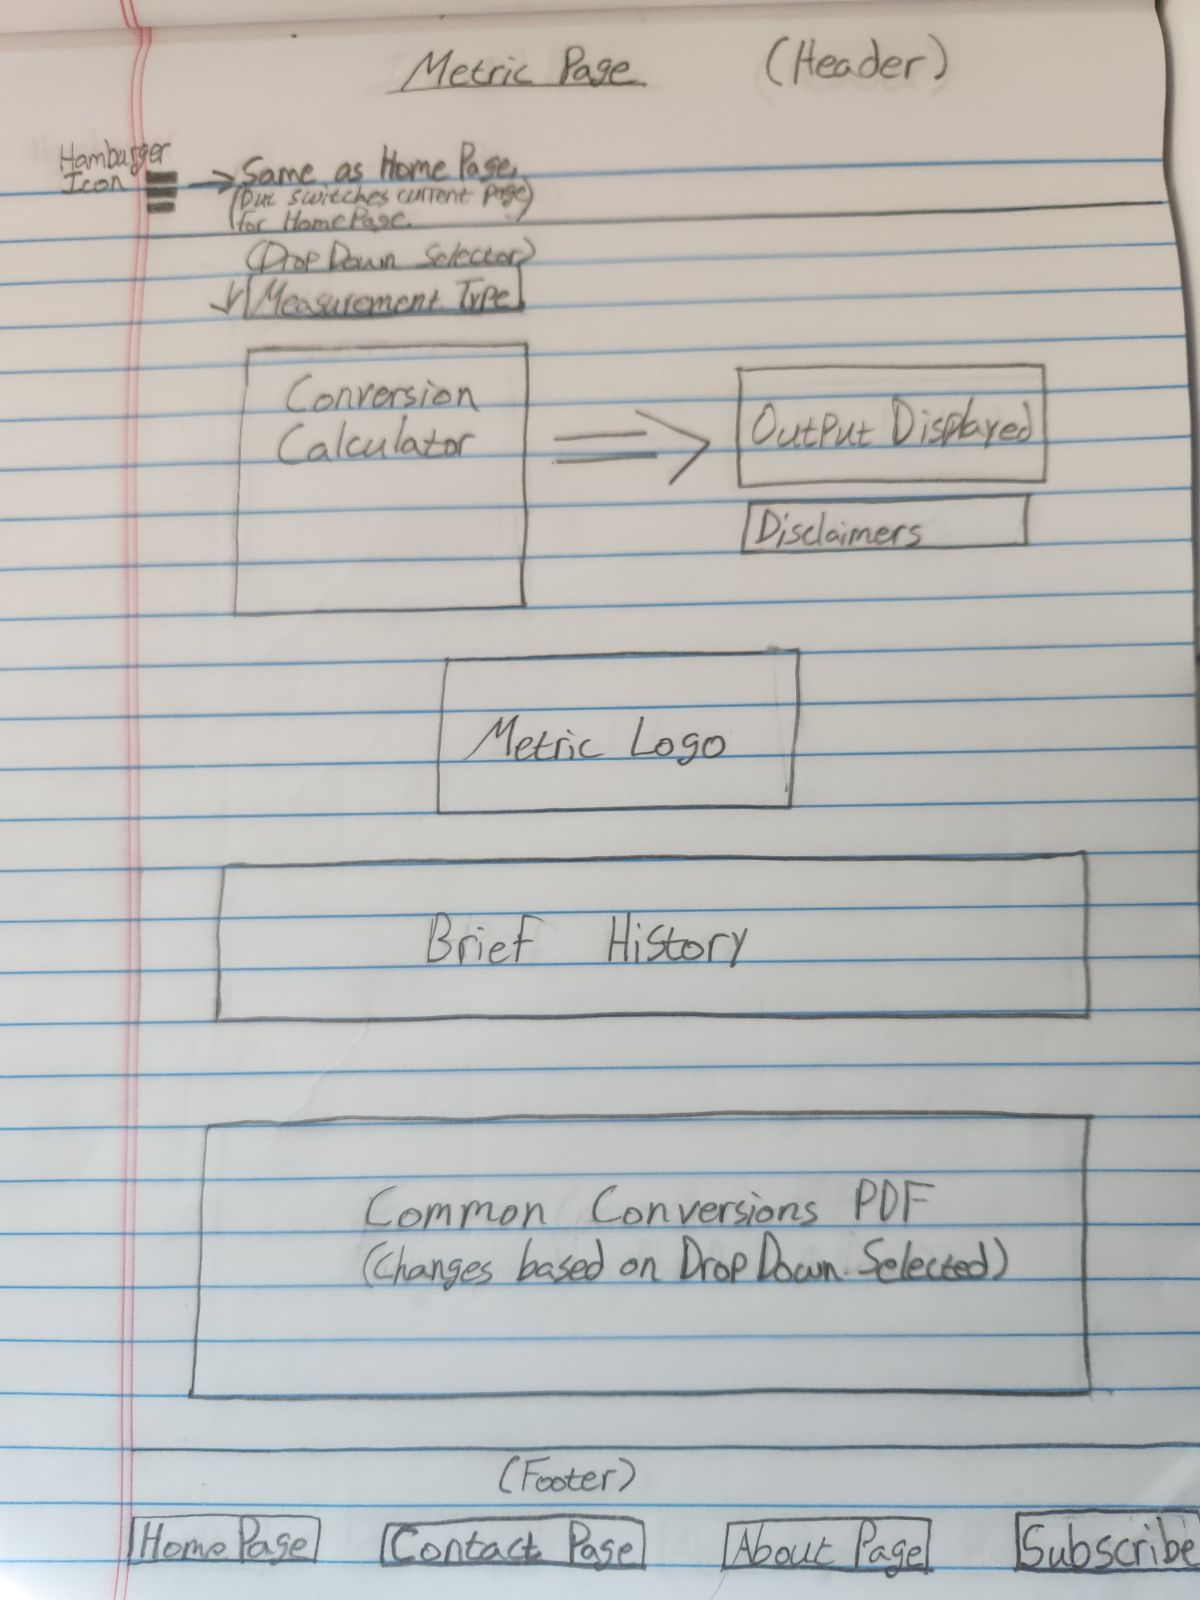 Metric Page (Header)
Hamburger
Icon
Same as Home Page,
(but switches current page)
for HomePage.
(Drop Down Selector)
Measurement Type
Conversion
Calculator
Output Displayed
Disclaimers
Metric Logo
Brief History
Common Conversions PDF
(Changes based on Drop Down Selected)
(Footer)
Home Page Contact Page About Page Subscribe